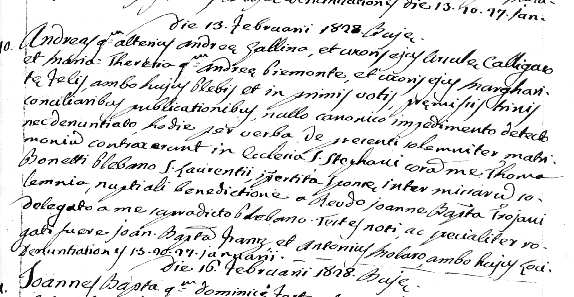 denuntiationes die 13. 20. 27. Jan-
die 13. Februarii 1828. Bujæ.
10. Andreas qm alterius Andreę Gallina, et uxoris ejus Ursulę Calligaro
et Maria Theresia qm Andreę Piemonte, et uxoris ejus Marghari-
tę Felis ambo hujus Plebis et in primis votis, pręmissis trinis
conciliaribus publicationibus, nullo canonico impedimento detecto
nec denuntiato, hodie per verba de presenti solemniter matri-
monium contraxerunt in Ecclesia S. Stephani coram me Thoma
Bonetti Plebano S. Laurentii, inter missarum so-
lemnia, nuptiali benedictione a Revdo Joanne Bapta Trojani
delegato a me sarradicto Plebano. Testes noti ac specialiter ro-
gati fuere Joan. Bapta Franz et Antonius Molaro ambo hujus Loci.
Denuntiationes 13. 20. 27. Januarii.
die 16. Februarii 1828. Bujæ.
Joannes Bapta qm Dominici